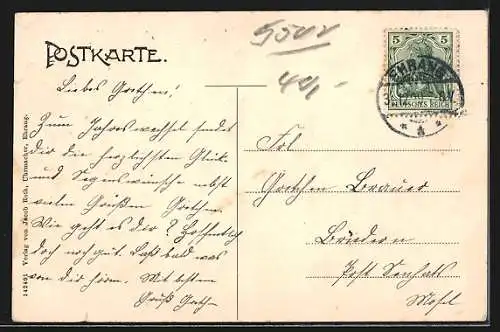 POSTKARTE.
5
5
EHRANG
DEUTSCHES REICH
Liebes Gretchen!
Zum Jahreswechsel sendet
dir die herzlichsten Glück
und Segenswünsche nebst
vielen Grüßen Gretchen.
Wie geht es dir? Hoffentlich
doch noch gut. Laß bald was
von dir hören. Mit bestem
Gruß Greth
Frl.
Gretchen Brauer
Post
Mosel
142491 Verlag von Jacob Roth, Uhrmacher, Ehrang.